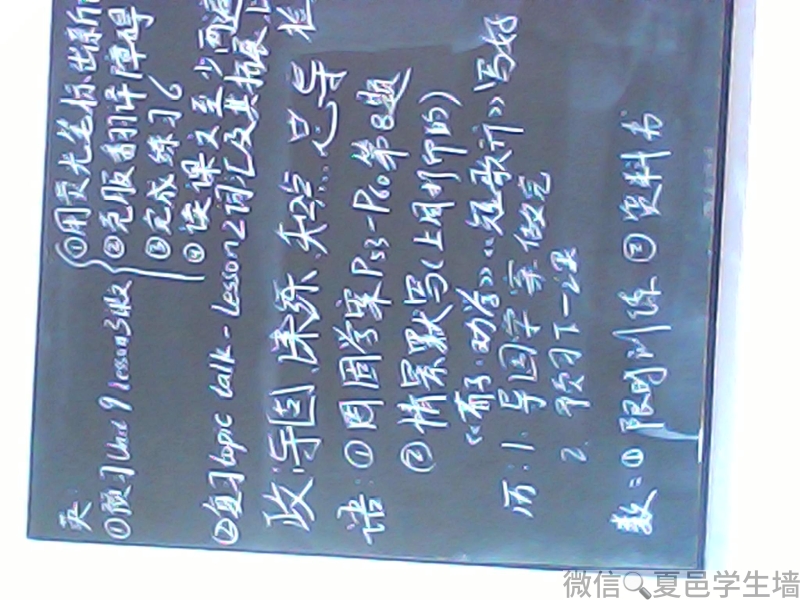 英:
①预习Unit 9 lesson3做
①用荧光笔标出条
②克服翻译障碍
③完成练习6
④读课文至少两遍
②复习topic talk - Lesson2词汇及其拓展
政:导图.课练.
语:①周周学案P53-P60第8题
②情景默写(上周打印的)
《劝学》《短歌行》写好
历:1.导图学案做完
2.预习下一课
数:①限时训练 ②资料书
微信 夏邑学生墙